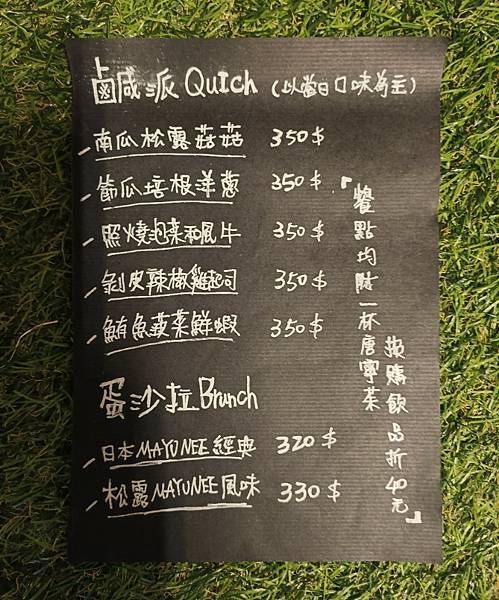 鹹派 Quich (以當日口味為主)
南瓜松露菇菇 350$
節瓜培根洋蔥 350$
照燒泡菜和風牛 350$
剝皮辣椒雞起司 350$
鮪魚菠菜鮮蝦 350$
蛋沙拉 Brunch
日本MAYONEE經典 320$
松露MAYUNEE風味 330$
「餐點均附一杯唐寧茶
換購飲品折40元」